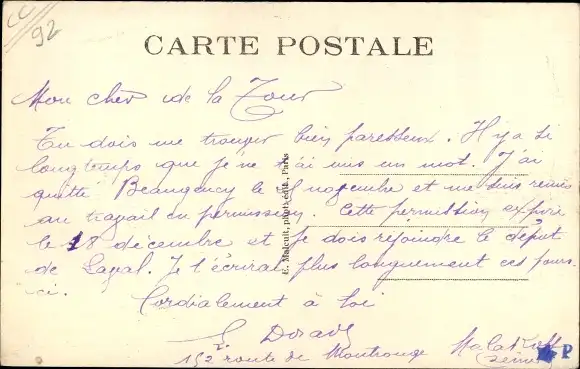 CC
92
CARTE POSTALE
Mon cher de la Tour
Tu dois me trouver bien paresseux. Il y a si
longtemps que je ne t'ai mis un mot. J'ai
quitté Beaugency le novembre et me suis remis
au travail en permission. Cette permission expire
le 18 décembre et je dois rejoindre le dépôt
de Laval. Je t'écrirai plus longuement ces jours-
ci. Cordialement à toi
152 route de Montrouge Malakoff
Seine
E. Malcuit, phot.-édit., Paris